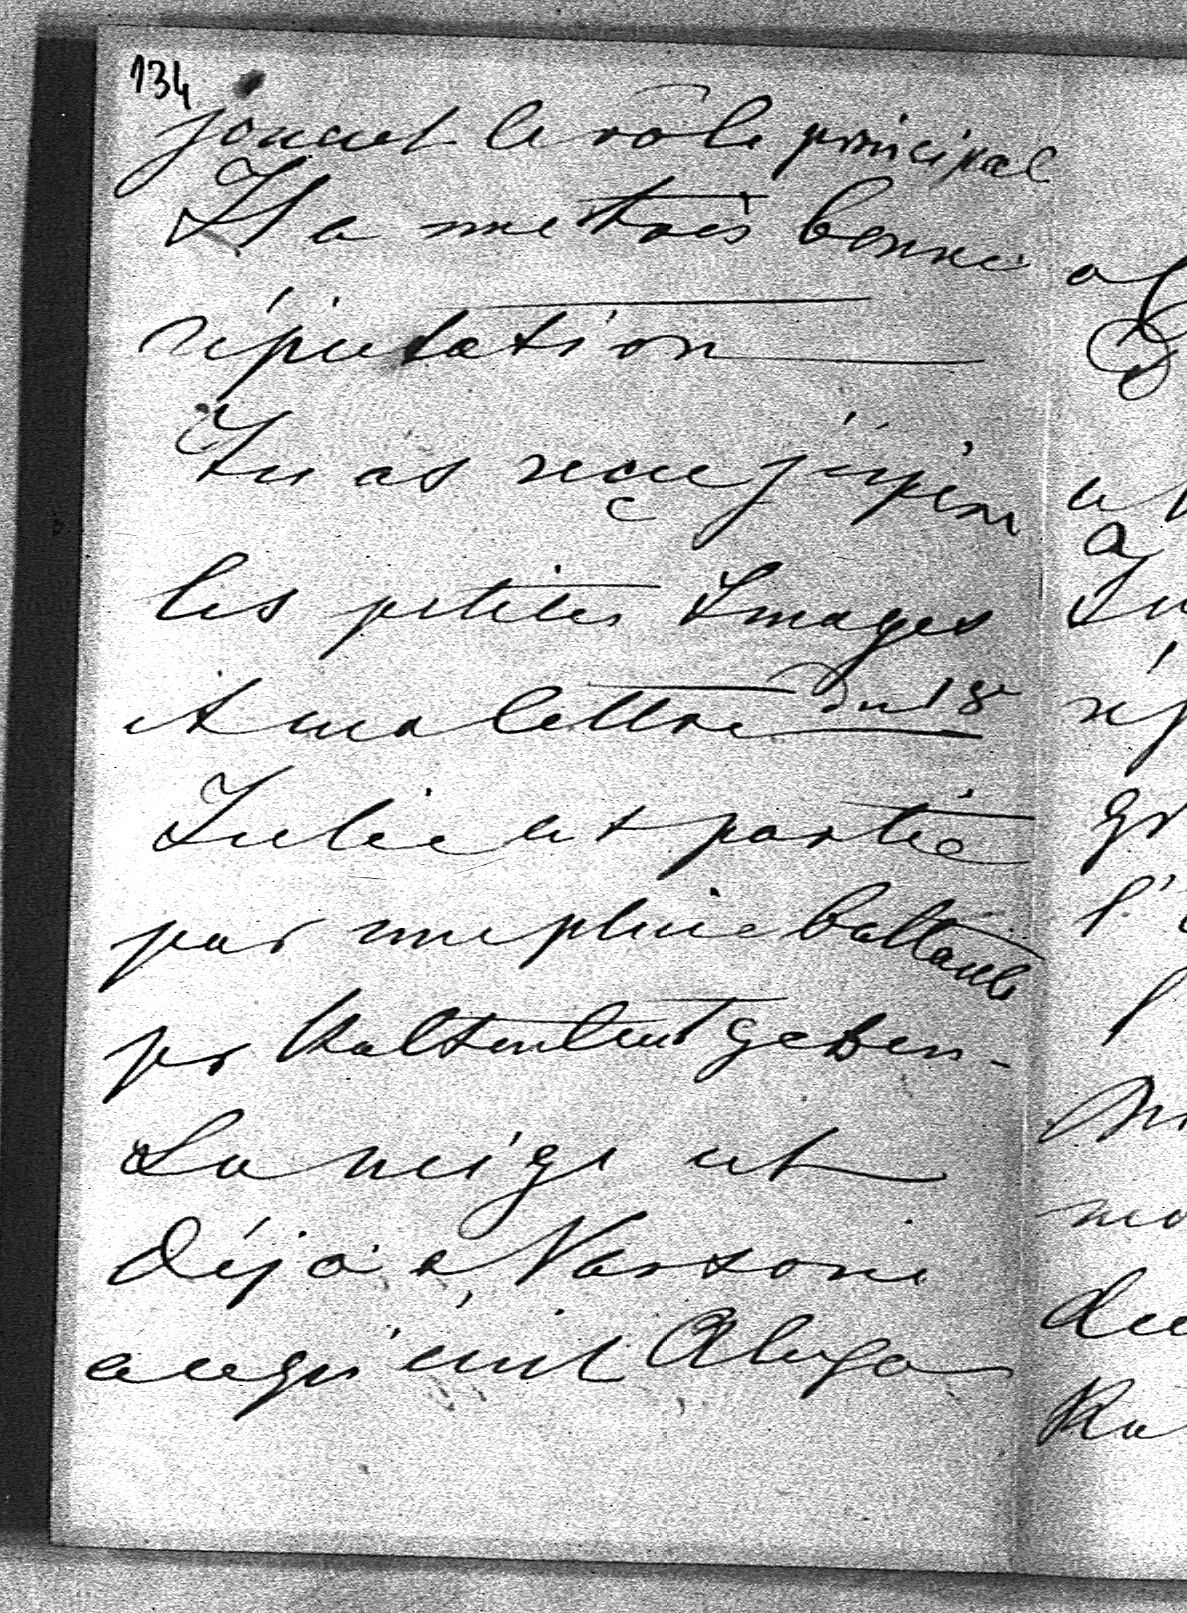 134
jouant le rôle principal
Il a une très bonne
réputation
Tu as reçue j'éspère
les petites Images
et ma lettre du 18
Julie est partie
par une pluie battante
pr Kaltenleutgeben-
La neige est
déjà a Varsovie
a ce qu'écrit Olga